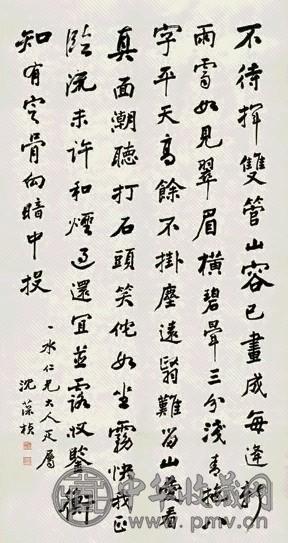 不待揮雙管山容已畫成每逢新
雨霽如見翠眉橫碧暈三分淺青描八
字平天高餘不掛塵遠翳難留山愛看
真面潮聽打石頭笑他如坐霧快我正
臨流未許和煙過還宜並露收鑒衡
知有定肯向暗中投
一水仁兄大人正屬
沈葆楨
中华收藏网